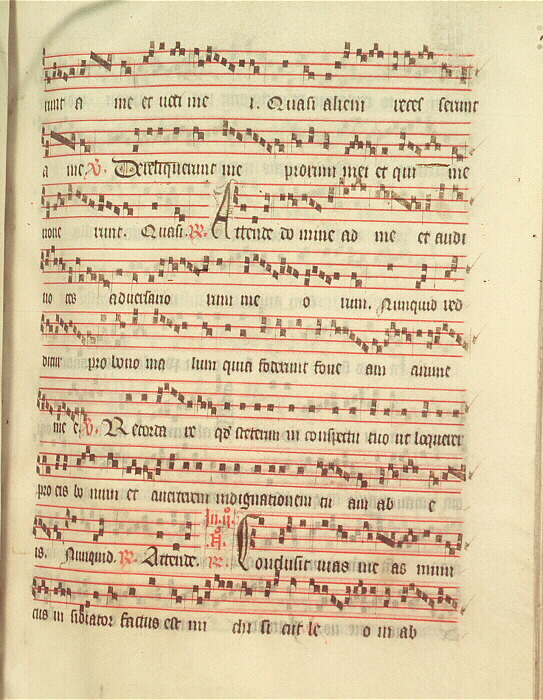 runt a me et veri me i. Quasi alieni reces serunt
a me. V. Dereliquerunt me proximi mei et qui me
nove runt. Quasi. R. Attende do mine ad me et audi
vo ces adversario rum me o rum. Nunquid red
ditur pro bono ma lum quia foderunt fove am anime
me e. V. Recorda re qd steterim in conspectu tuo ut loquerer
pro eis bo num et averterem indignationem tu am ab e
is. Nunquid. R. Attende. In. ij. R. Conclusit vias me as inimi
cus insidiator factus est mi chi si cut le o in ab